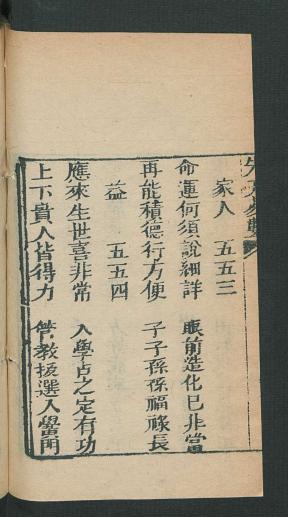 家人　五五三
命運何須說細詳　眼前造化已非常
再能積德行方便　子子孫孫福祿長
益　五五四
應來生世喜非常　入學占之定有功
上下貴人皆得力　管教拔選入黌門